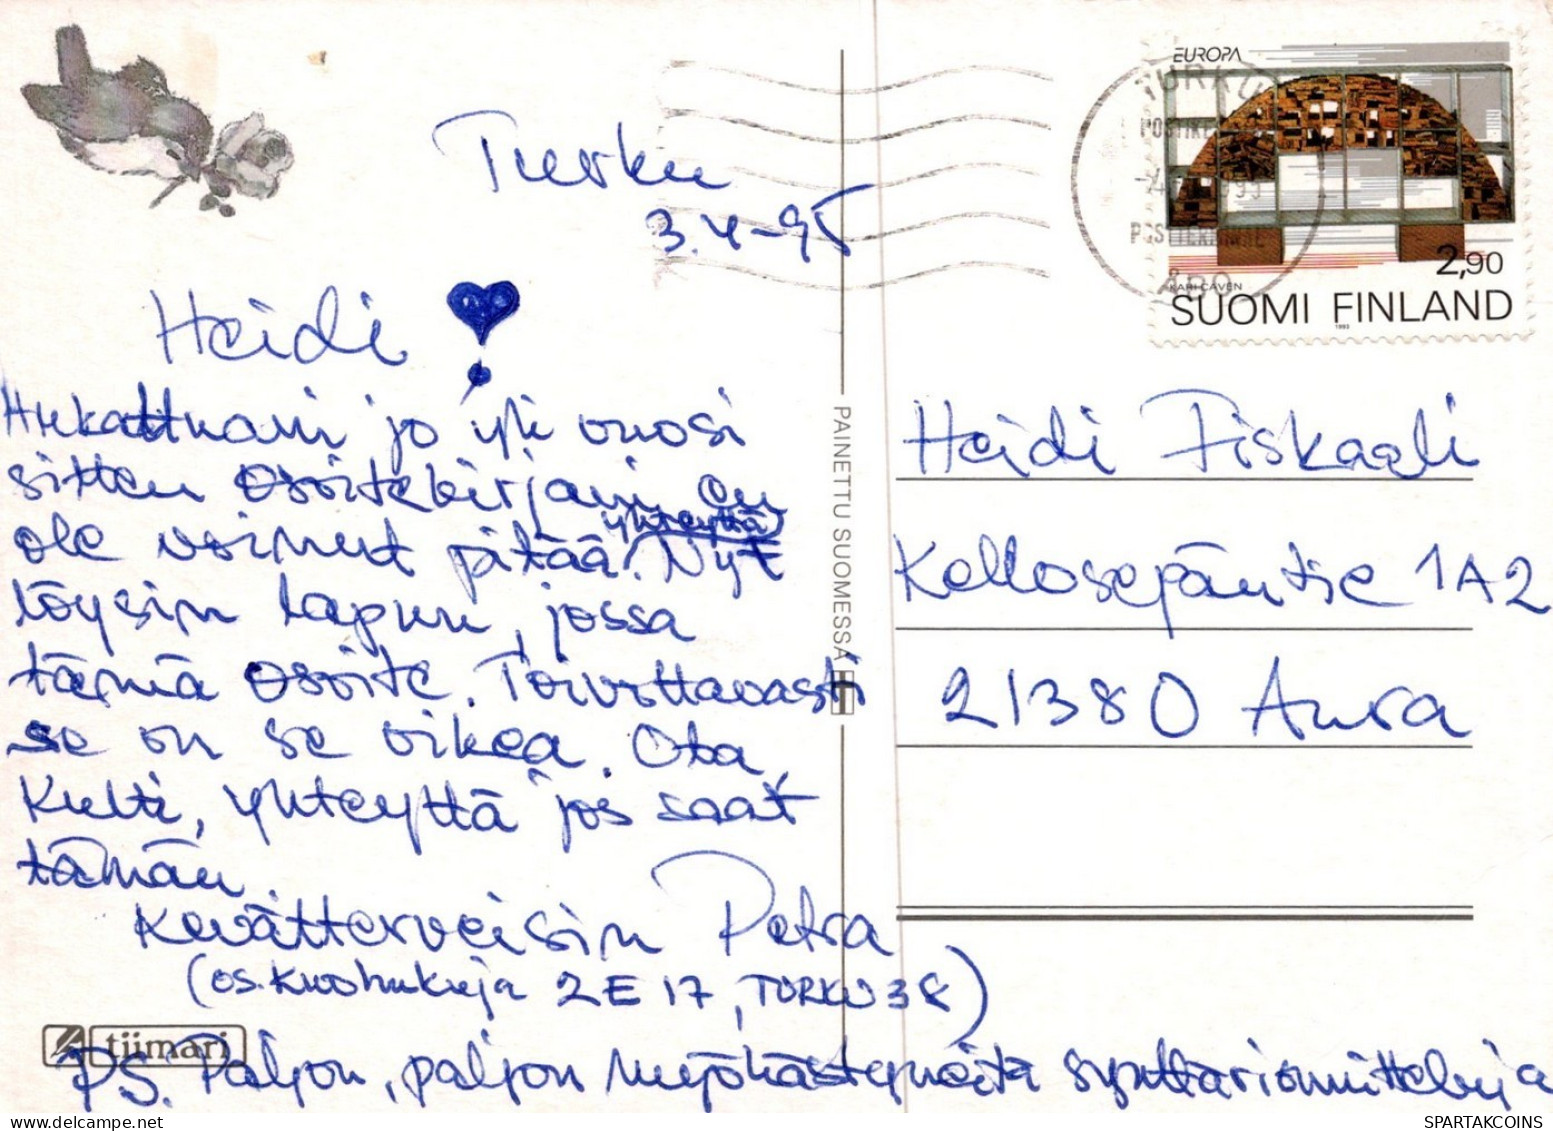 Turku
3.4-95
Heidi
Hukattuani jo yli vuosi
sitten osoitekirjani en
ole voinut pitää yhteyttä. Nyt
löysin lapun, jossa
tämä osoite. Toivottavasti
se on se oikea. Ota,
Kulti, yhteyttä jos saat
tämän.
Kevätterveisin Petra
(os. Kuohukuja 2 E 17, TURKU 38)
PS. Paljon, paljon myöhästyneitä synttärionnitteluja
tiimari
PAINETTU SUOMESSA
EUROPA
TURKU
ÅBO
2,90
KARI CAVÉN
SUOMI FINLAND
1993
Heidi Fiskaali
Kellosepäntie 1A2
21380 Aura
SPARTAKCOINS